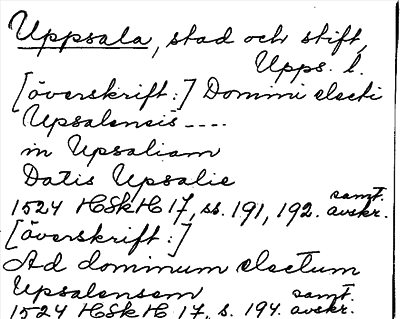 Uppsala, stad och stift,
Upps. l.
[överskrift:] Domini electi
Upsalensis ----
in Upsaliam
Datis Upsalie
1524 HSkH 17, ss. 191, 192. samt. avskr.
[överskrift:]
Ad dominum electum
Upsalensem
1524 HSkH 17, s. 194. samt. avskr.